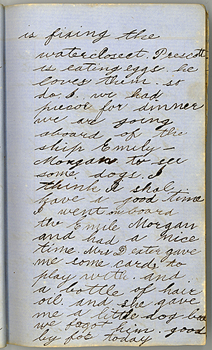 is fixing the
watercloset. Prescott
is eating eggs. he
loves them. so
do I. we had
for dinner
we are going
aboard of the
ship Emily-
Morgan to see
some dogs. I
think I shal
have a good time
I went onboard
the Emile Morgan
and had a nice
time. Mrs Dexter gave
me some cards to
play with and
a bottle of hair
oil and she gave
me a little dog but
we forgot him. good
by for today